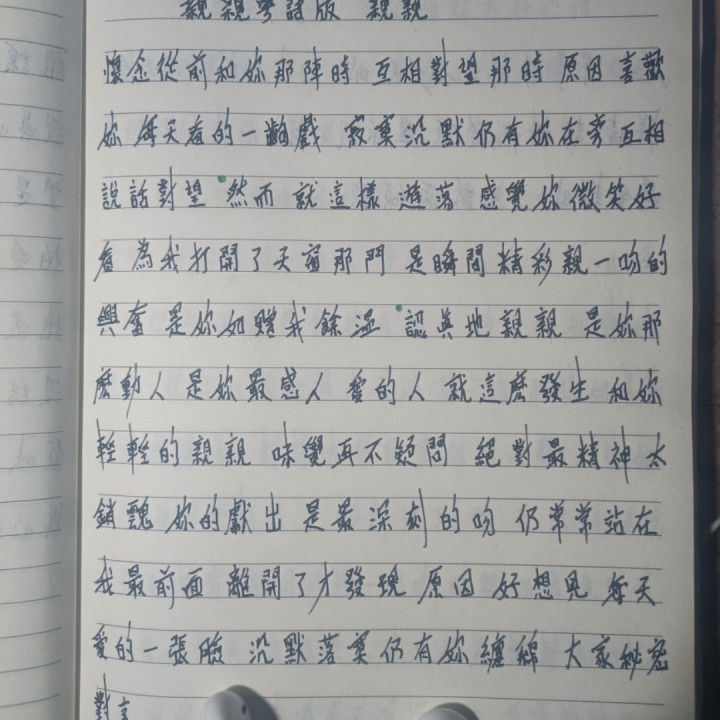 親親粵語版 親親
懷念從前和妳那陣時 互相對望那時 原因喜歡
妳 每天看的一齣戲 寂寞沉默仍有妳在旁互相
說話對望 然而 就這樣遊蕩 感覺妳微笑好
看 為我打開了天窗那門 是瞬間精彩親一吻的
興奮 是妳如贈我餘溫 認真地親親 是妳那
麼動人 是妳最感人 愛的人 就這麼發生 和妳
輕輕的親親 味覺再不疑問 絕對最精神太
銷魂 妳的獻出 是最深刻的吻 仍常常站在
我最前面 離開了才發現 原因 好想見 每天
愛的一張臉 沉默落寞仍有妳纏綿 大家秘密
對言